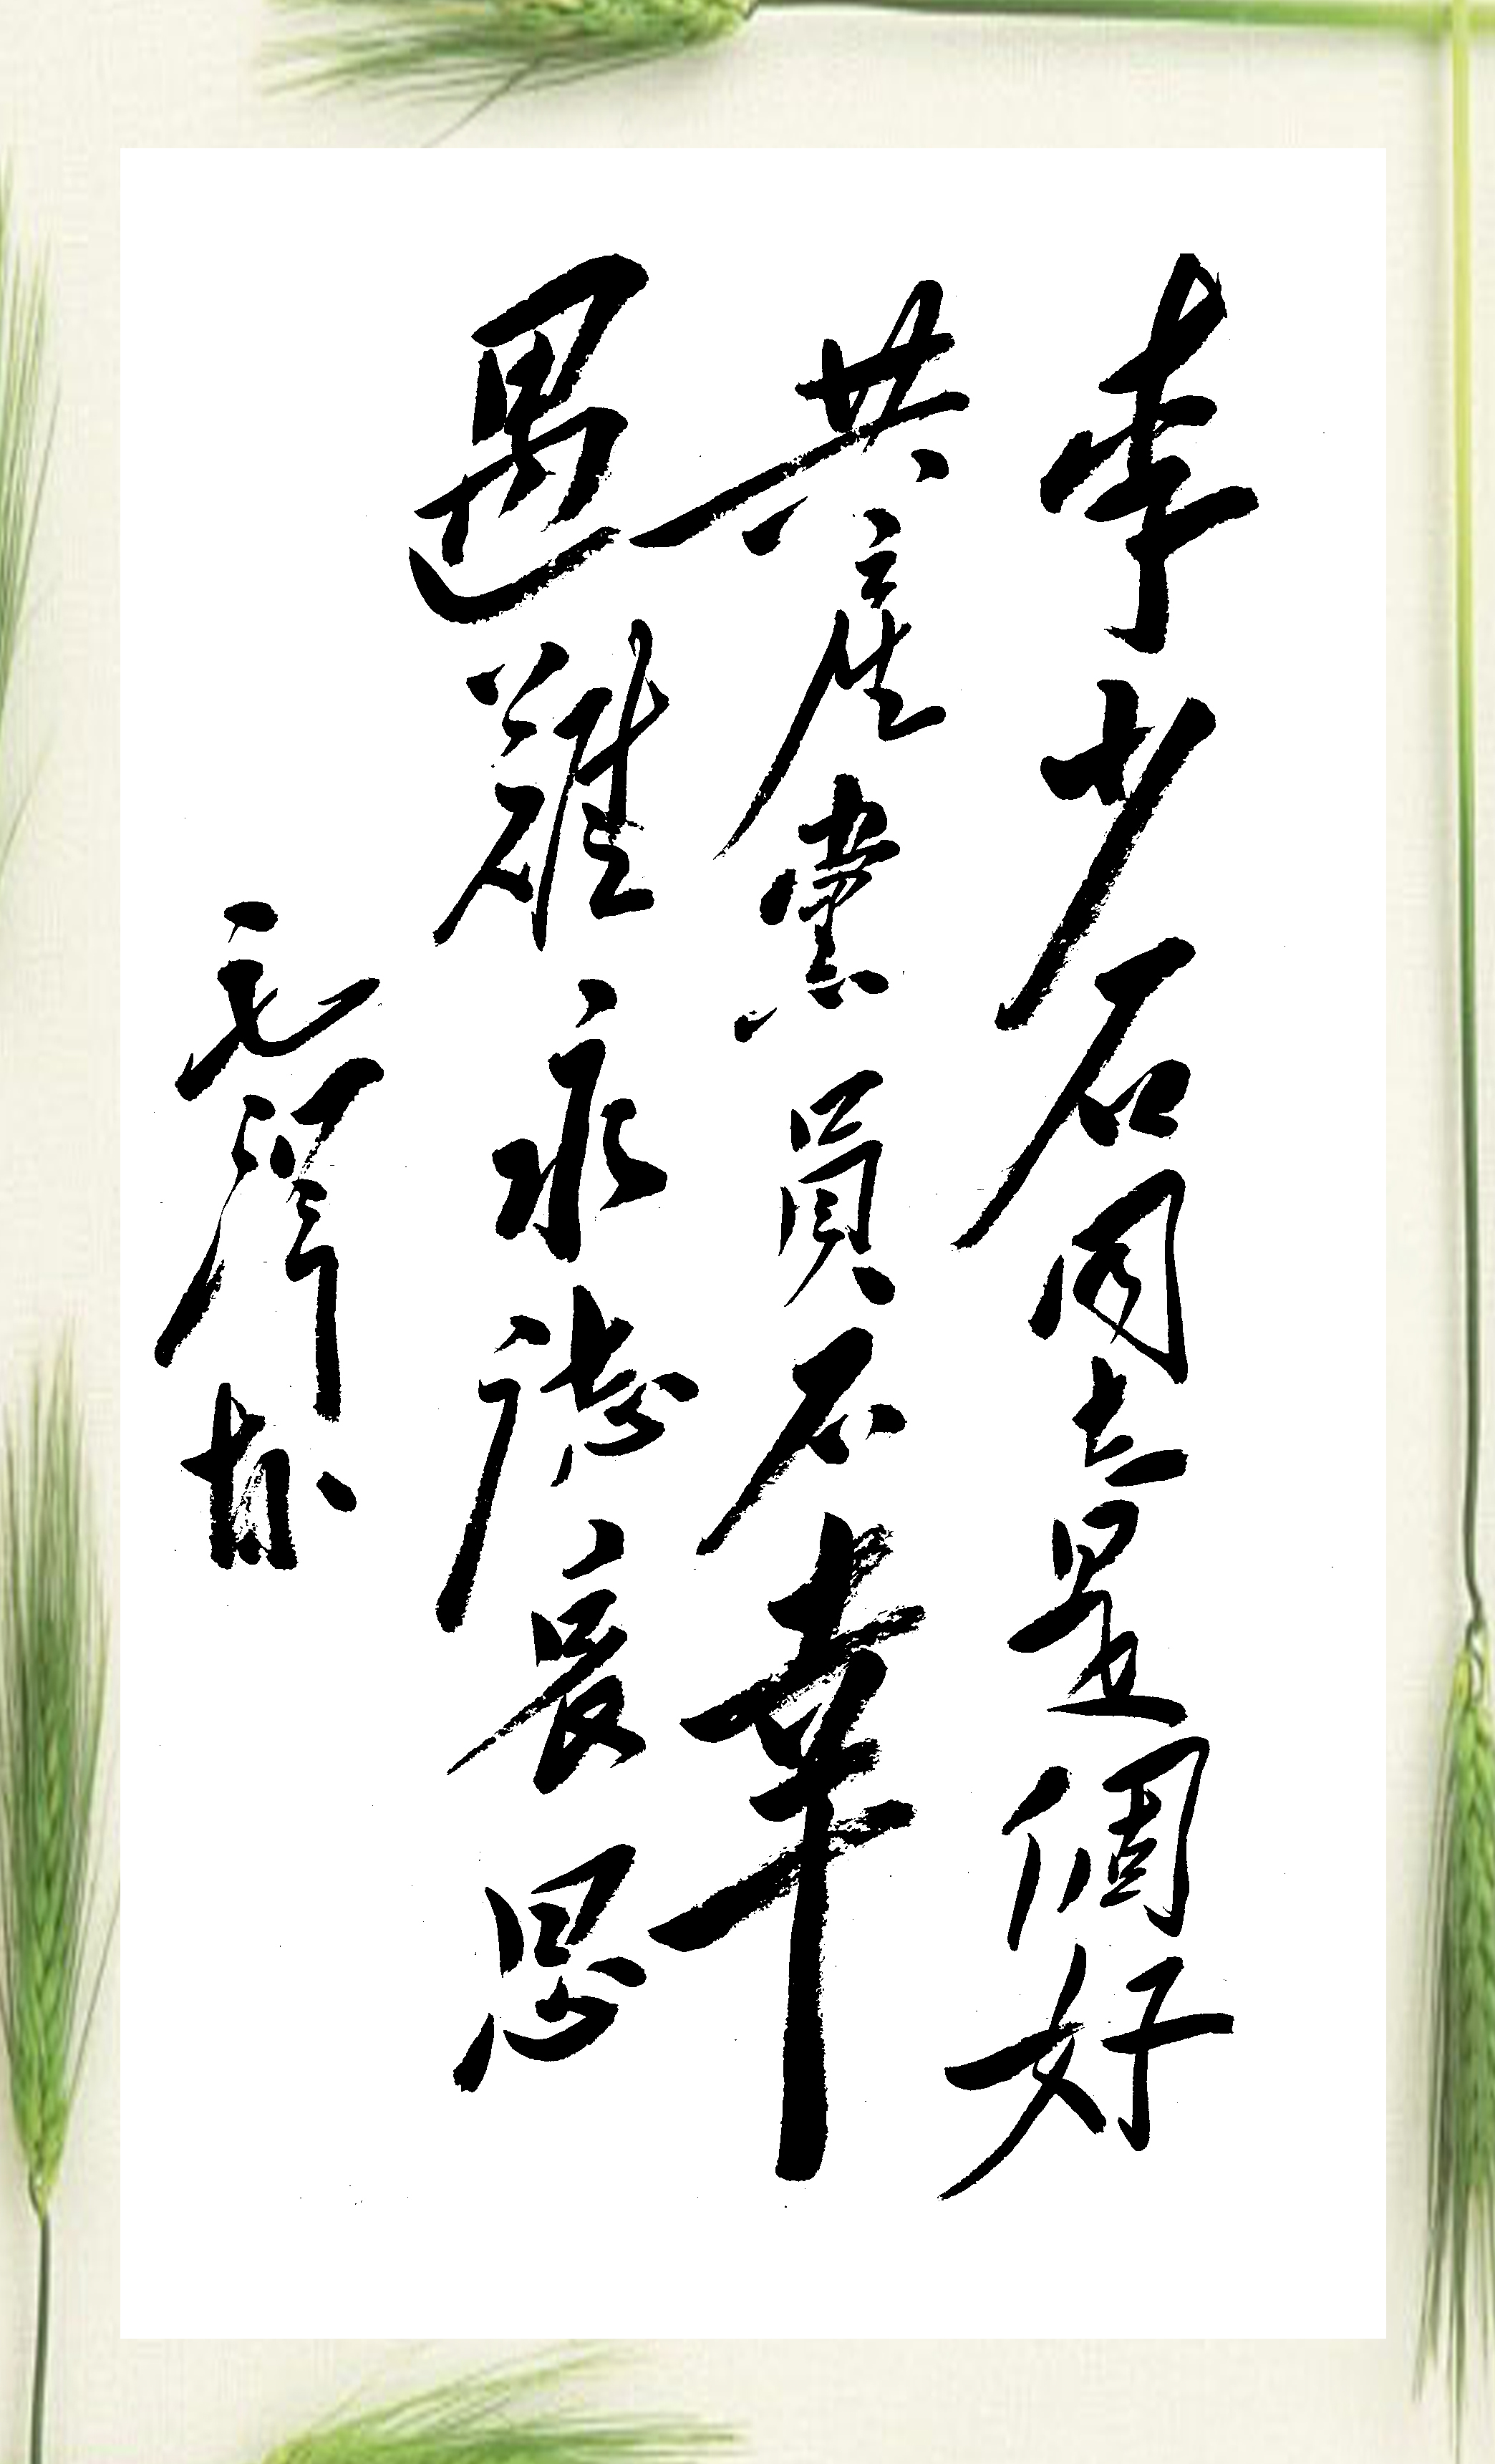 李少石同志是個好
共産黨員不幸
遇難永誌哀思
毛澤東